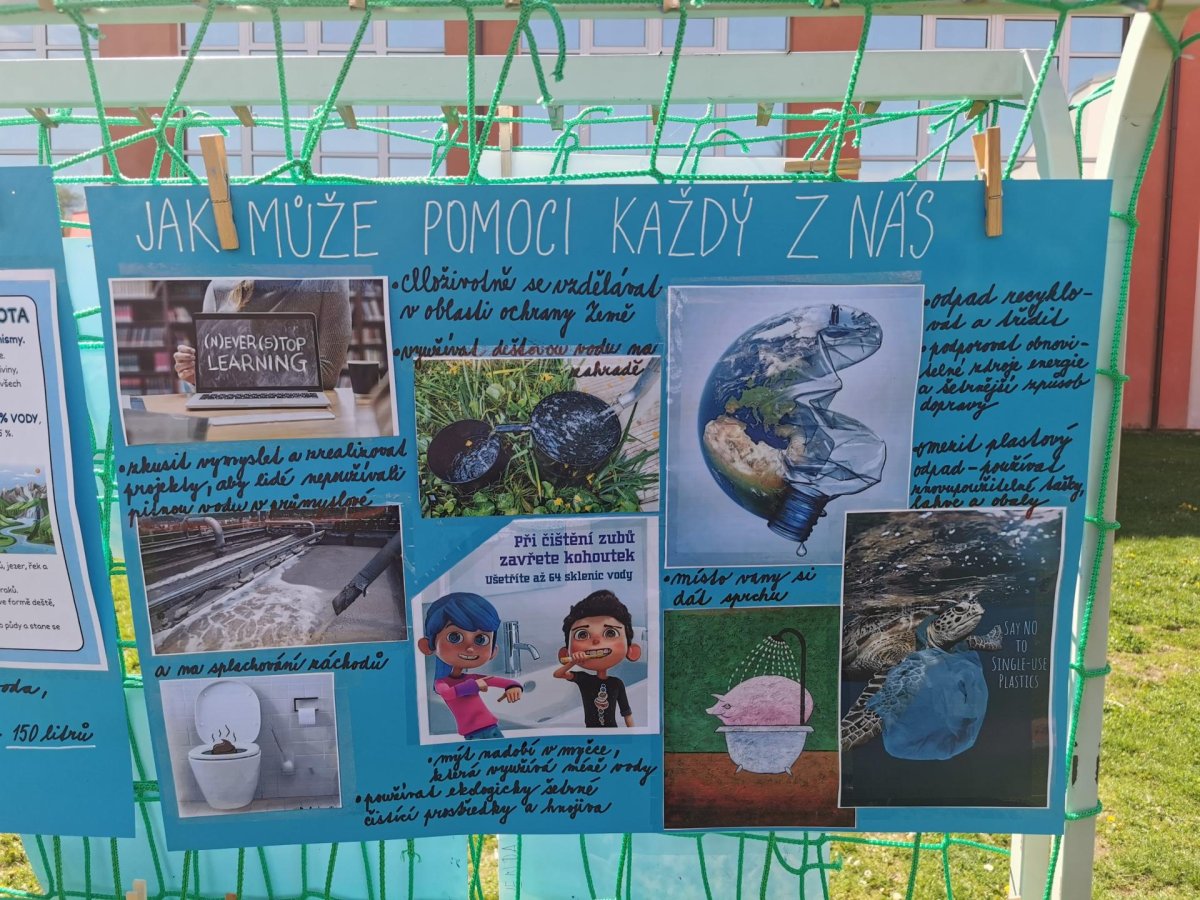 JAK MŮŽE POMOCI KAŽDÝ Z NÁS
(N)EVER (S)TOP
LEARNING
• celoživotně se vzdělávat
v oblasti ochrany Země
• využívat dešťovou vodu na
zahradě
• zkusit vymyslet a zrealizovat
projekty, aby lidé nepoužívali
pitnou vodu v průmyslové
a na splachování záchodů
Při čištění zubů
zavřete kohoutek
Ušetříte až 64 sklenic vody
• mýt nádobí v myčce,
která využívá méně vody
• používat ekologicky šetrné
čistící prostředky a hnojiva
• místo vany si
dát sprchu
• odpad recyklo-
vat a třídit
• podporovat obnovi-
telné zdroje energie
a šetrnější způsob
dopravy
• omezit plastový
odpad - používat
znovupoužitelné tašky,
lahve a obaly
SAY NO
TO
SINGLE-USE
PLASTICS
OTA
ismy.
viny,
všech
% VODY,
%.
ů, jezer, řek a
raků.
ve formě deště,
a půdy a stane se
oda,
150 litrů